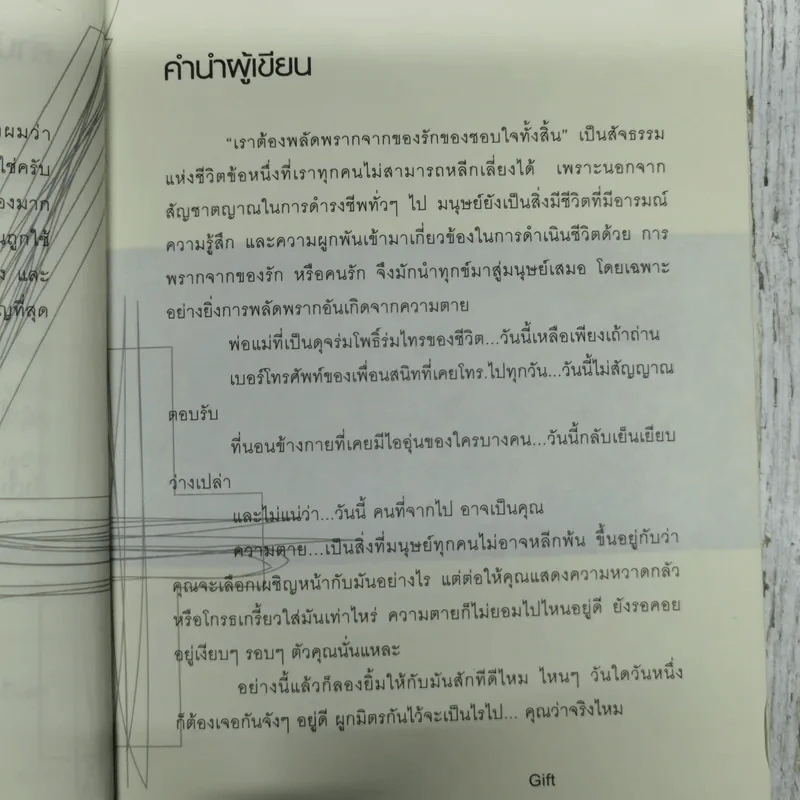 ผมว่า
ใช่ครับ
องมาก
นถูกใช้
และ
ญที่สุด
คำนำผู้เขียน
“เราต้องพลัดพรากจากของรักของชอบใจทั้งสิ้น” เป็นสัจธรรม
แห่งชีวิตข้อหนึ่งที่เราทุกคนไม่สามารถหลีกเลี่ยงได้ เพราะนอกจาก
สัญชาตญาณในการดำรงชีพทั่วๆ ไป มนุษย์ยังเป็นสิ่งมีชีวิตที่มีอารมณ์
ความรู้สึก และความผูกพันเข้ามาเกี่ยวข้องในการดำเนินชีวิตด้วย การ
พรากจากของรัก หรือคนรัก จึงมักนำทุกข์มาสู่มนุษย์เสมอ โดยเฉพาะ
อย่างยิ่งการพลัดพรากอันเกิดจากความตาย
พ่อแม่ที่เป็นดุจร่มโพธิ์ร่มไทรของชีวิต...วันนี้เหลือเพียงเถ้าถ่าน
เบอร์โทรศัพท์ของเพื่อนสนิทที่เคยโทร.ไปทุกวัน...วันนี้ไม่สัญญาณ
ตอบรับ
ที่นอนข้างกายที่เคยมีไออุ่นของใครบางคน...วันนี้กลับเย็นเยียบ
ว่างเปล่า
และไม่แน่ว่า...วันนี้ คนที่จากไป อาจเป็นคุณ
ความตาย...เป็นสิ่งที่มนุษย์ทุกคนไม่อาจหลีกพ้น ขึ้นอยู่กับว่า
คุณจะเลือกเผชิญหน้ากับมันอย่างไร แต่ต่อให้คุณแสดงความหวาดกลัว
หรือโกรธเกรี้ยวใส่มันเท่าไหร่ ความตายก็ไม่ยอมไปไหนอยู่ดี ยังรอคอย
อยู่เงียบๆ รอบๆ ตัวคุณนั่นแหละ
อย่างนี้แล้วก็ลองยิ้มให้กับมันสักทีดีไหม ไหนๆ วันใดวันหนึ่ง
ก็ต้องเจอกันจังๆ อยู่ดี ผูกมิตรกันไว้จะเป็นไรไป... คุณว่าจริงไหม
Gift